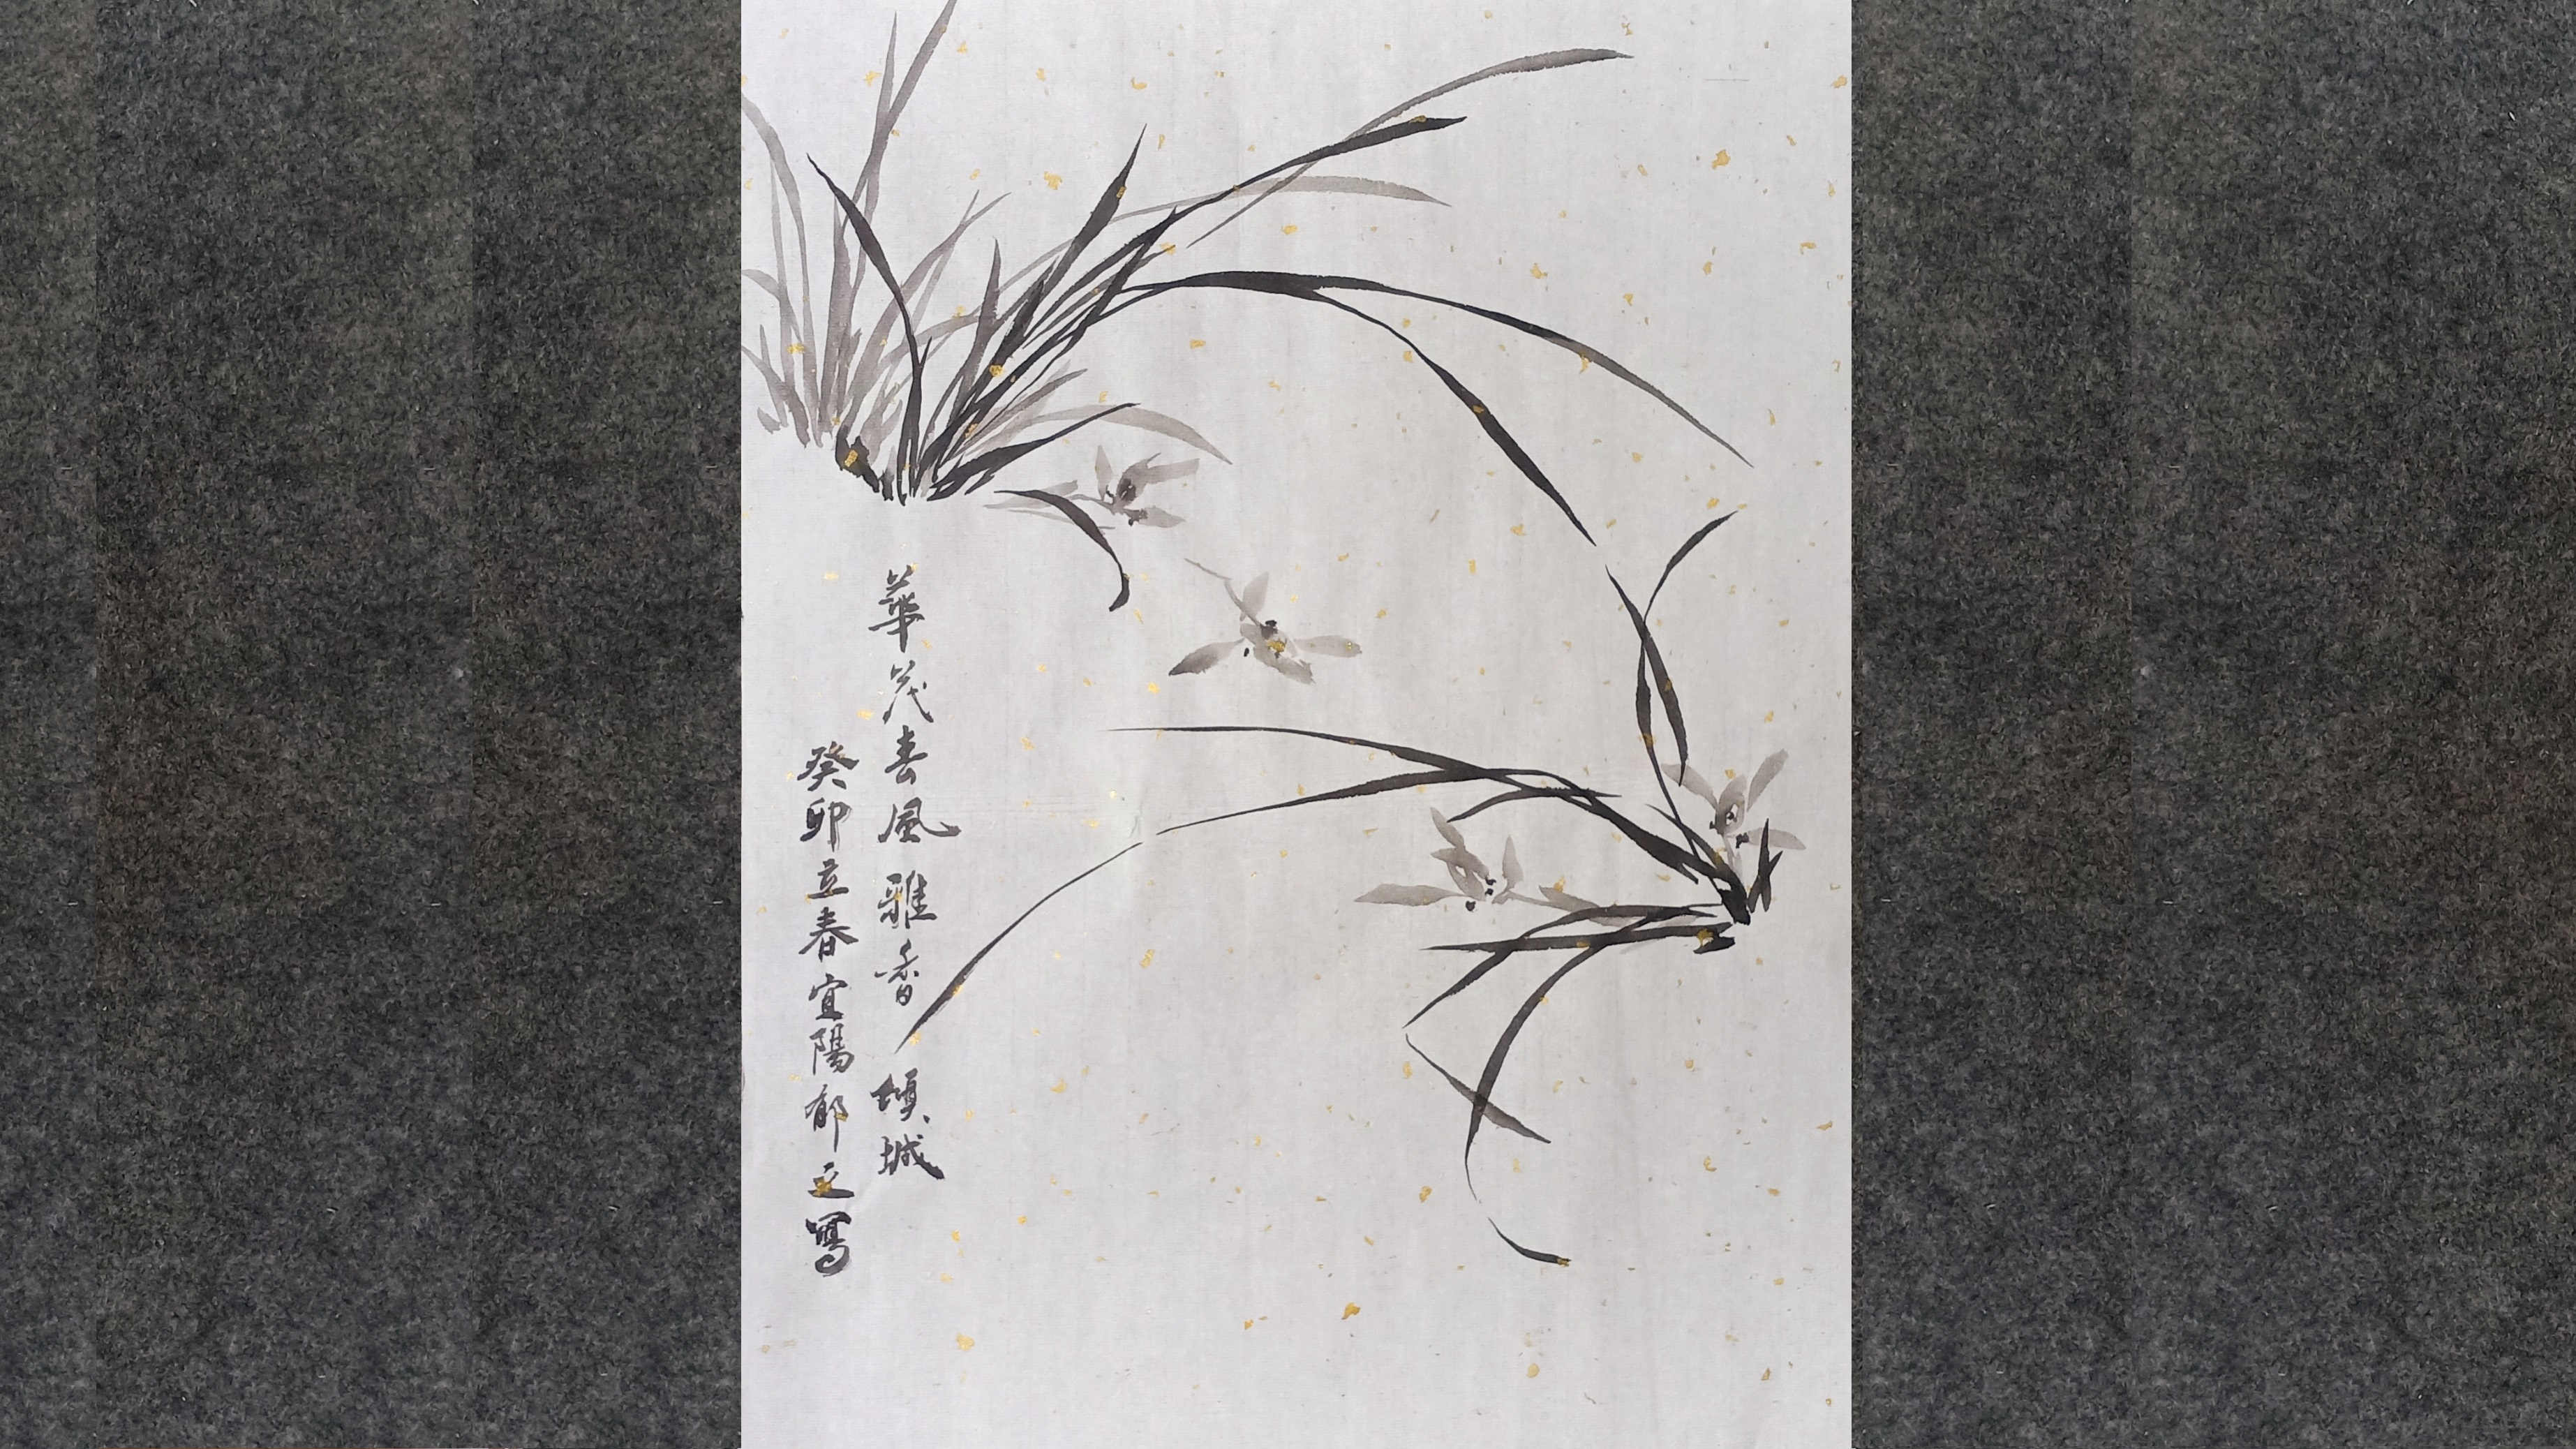 華茂春風雅香傾城
癸卯立春宜陽郁文寫